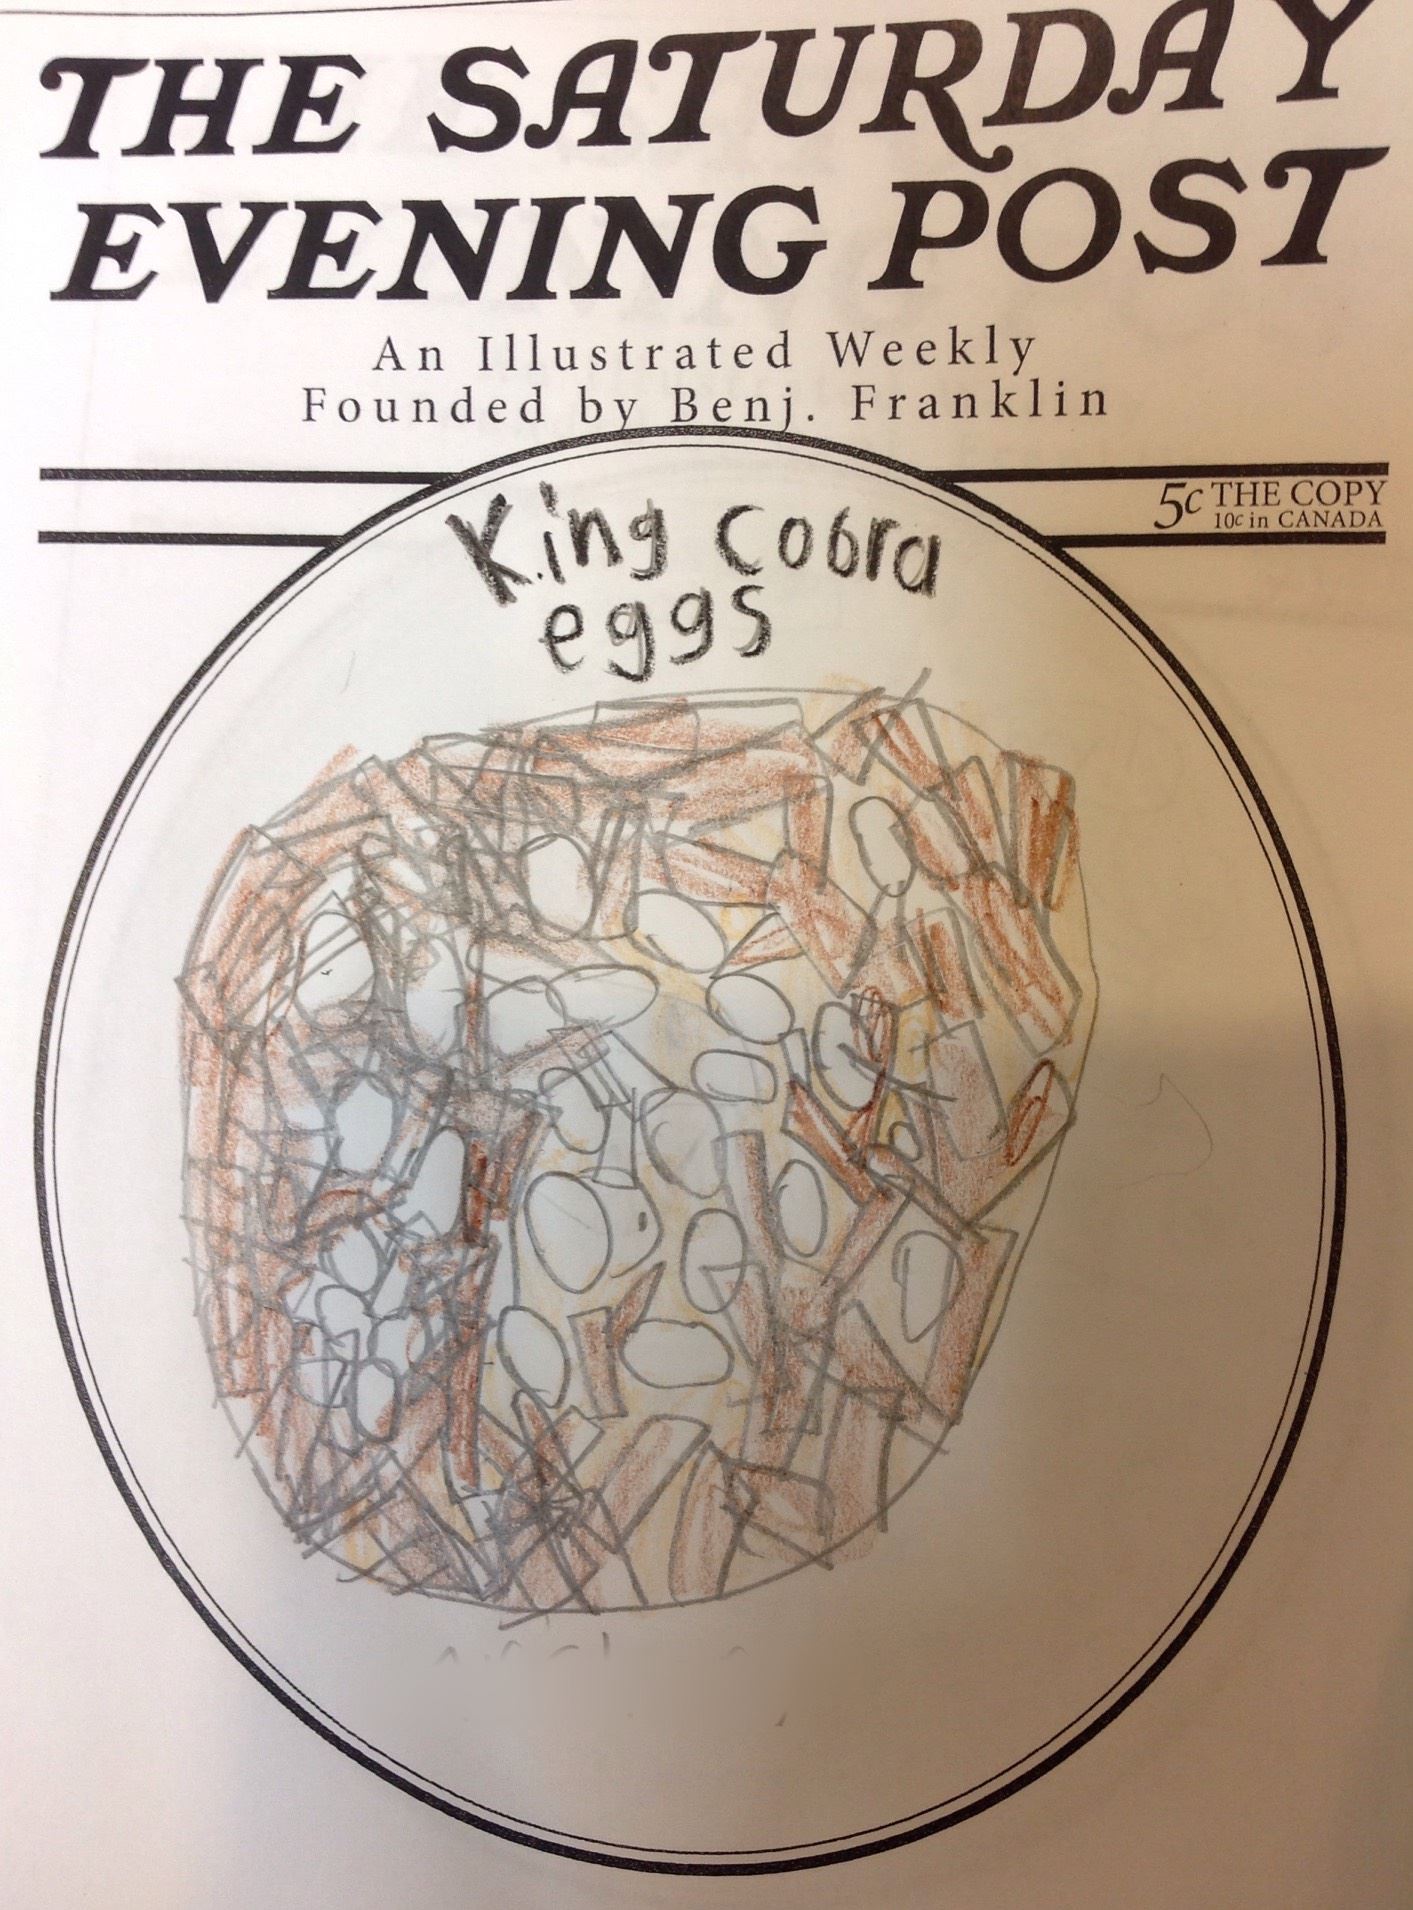 THE SATURDAY
EVENING POST
An Illustrated Weekly
Founded by Benj. Franklin
5c THE COPY
10c in CANADA
King cobra
eggs